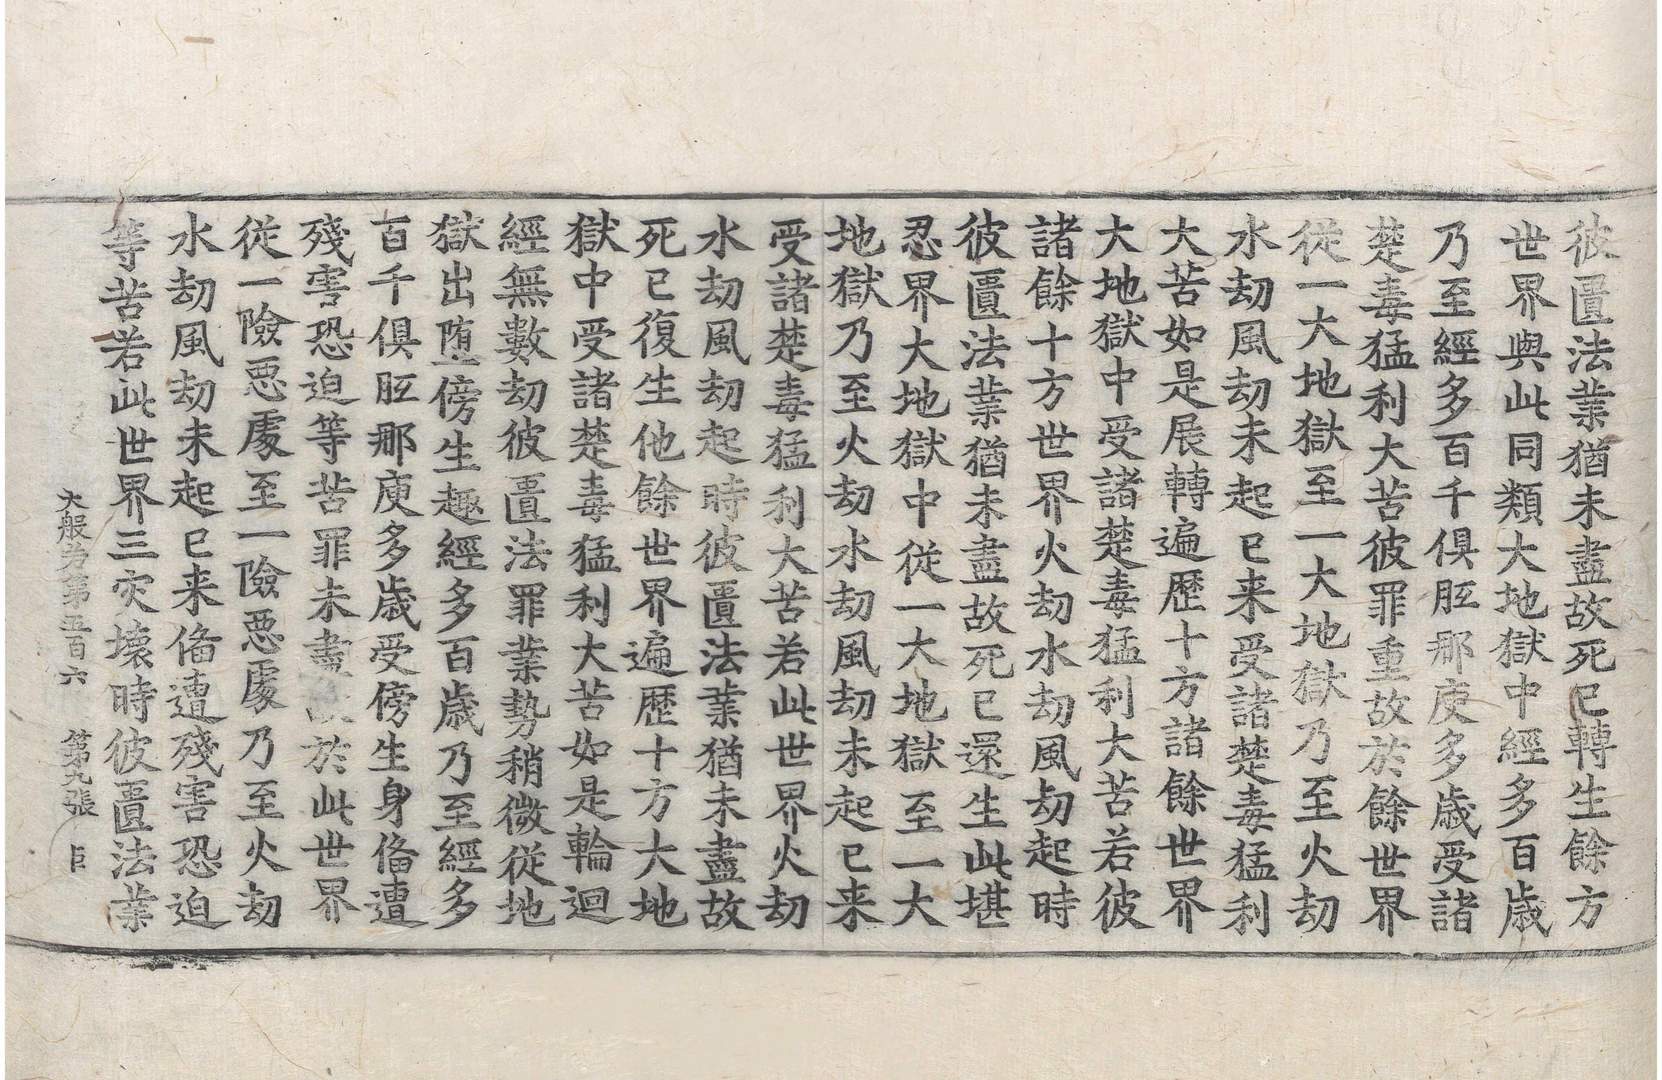 彼匱法業猶未盡故死已轉生餘方
世界與此同類大地獄中經多百歲
乃至經多百千俱胝那庾多歲受諸
楚毒猛利大苦彼罪重故於餘世界
從一大地獄至一大地獄乃至火劫
水劫風劫未起已来受諸楚毒猛利
大苦如是展轉遍歷十方諸餘世界
大地獄中受諸楚毒猛利大苦若彼
諸餘十方世界火劫水劫風劫起時
彼匱法業猶未盡故死已還生此堪
忍界大地獄中從一大地獄至一大
地獄乃至火劫水劫風劫未起已来
受諸楚毒猛利大苦若此世界火劫
水劫風劫起時彼匱法業猶未盡故
死已復生他餘世界遍歷十方大地
獄中受諸楚毒猛利大苦如是輪迴
經無數劫彼匱法罪業勢稍微從地
獄出墮傍生趣經多百歲乃至經多
百千俱胝那庾多歲受傍生身俻遭
殘害恐迫等苦罪未盡故於此世界
從一險惡處至一險惡處乃至火劫
水劫風劫未起已来俻遭殘害恐迫
等苦若此世界三灾壞時彼匱法業
大般若第五百六 第九張 巨